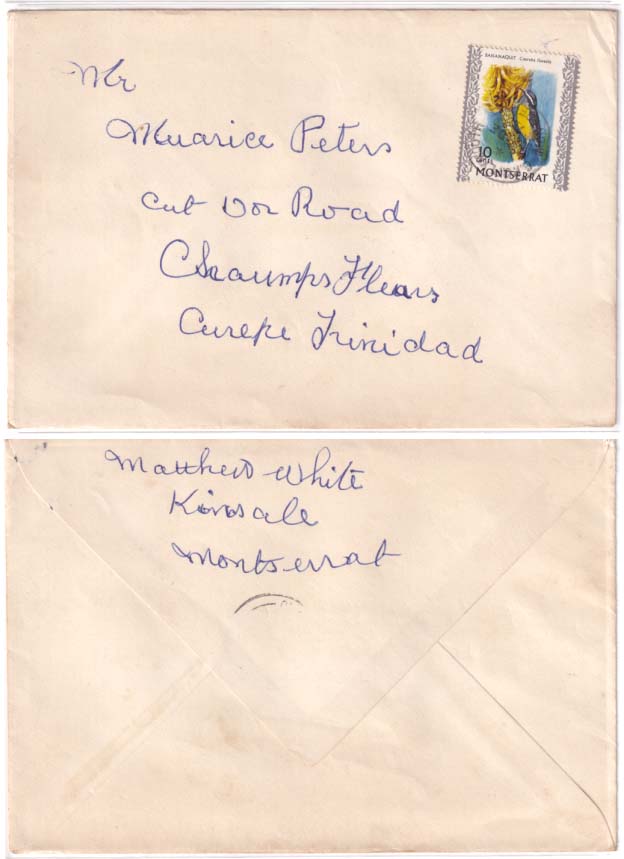 BANANAQUIT Coereba flaveola
10
CENTS
MONTSERRAT
Mr
Muarice Peters
Cut Road
Chaumps Fleurs
Curepe Trinidad
Matthew White
Kinsale
Montserrat